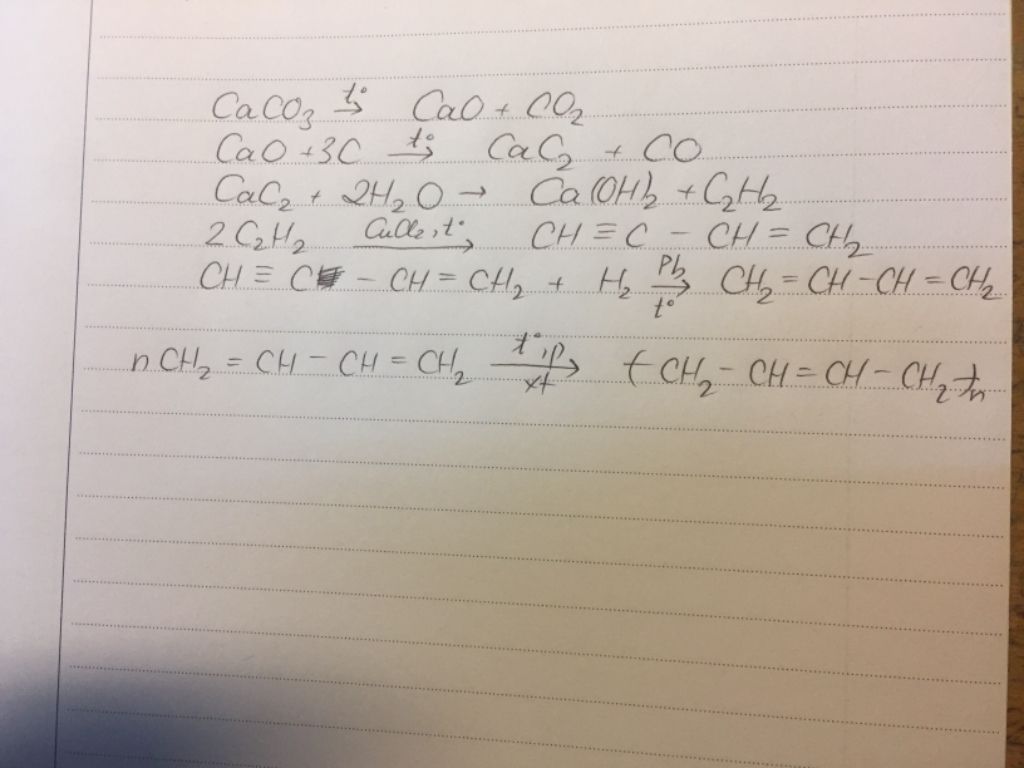 CaCO₃ →(t°) CaO + CO₂
CaO + 3C →(t°) CaC₂ + CO
CaC₂ + 2H₂O → Ca(OH)₂ + C₂H₂
2C₂H₂ →(CuCl₂, t°) CH ≡ C - CH = CH₂
CH ≡ C - CH = CH₂ + H₂ →(Pb, t°) CH₂ = CH - CH = CH₂
nCH₂ = CH - CH = CH₂ →(t°, p, xt) (CH₂ - CH = CH - CH₂)n